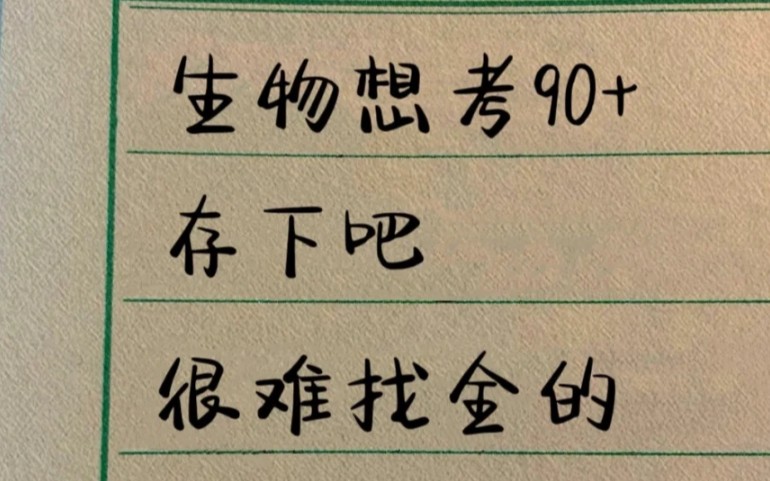 生物想考90+
存下吧
很难找全的